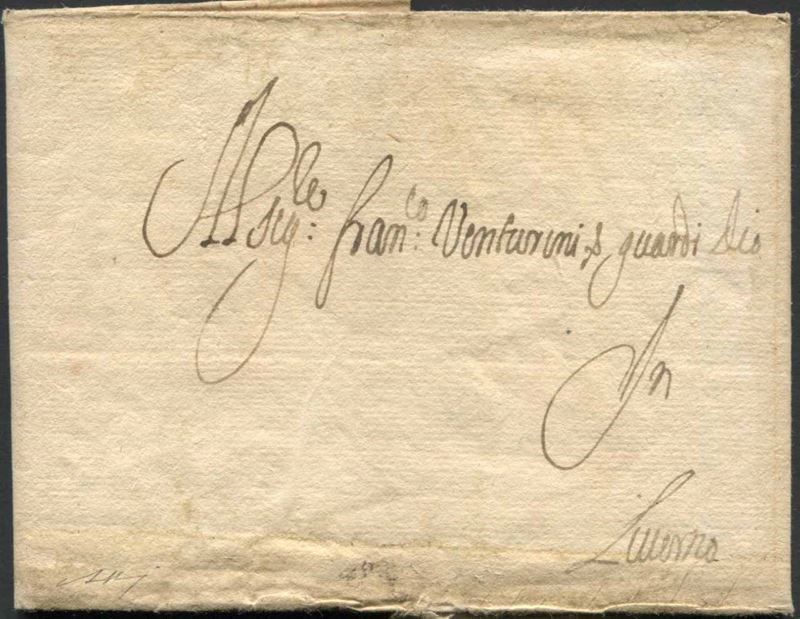 Al sig:le Fran:co Venturini, guardi Dio
In
Livorno